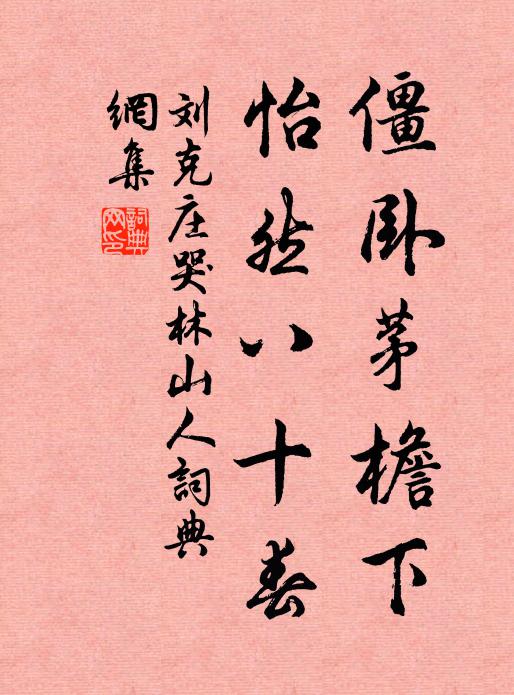 僵卧茅檐下
怡然八十春
刘克庄哭林山人詞典
網集
詞典
网印